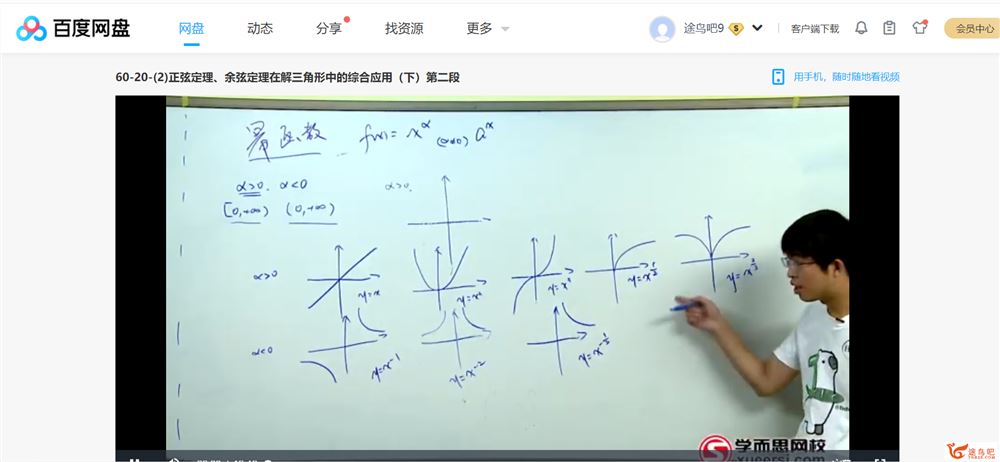 百度网盘 网盘 动态 分享 找资源 更多 途鸟吧9 S 客户端下载 会员中心
60-20-(2)正弦定理、余弦定理在解三角形中的综合应用（下）第二段 用手机，随时随地看视频
幂函数 f(x)= x^α (α≠0) a^x
α>0. α<0 α>0.
[0,+∞) (0,+∞)
α>0 y=x y=x² y=x³ y=x^½ y=x^⅔
α<0 y=x⁻¹ y=x⁻² y=x^-½
学而思网校
xueersi.com
途鸟吧